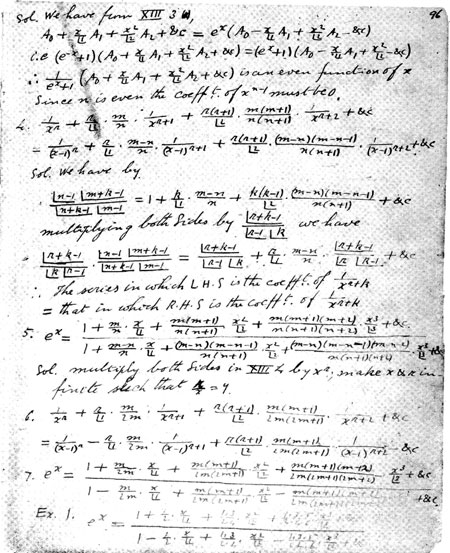 96
Sol. We have from XIII 3 
A₀ + x/⌊1 A₁ + x²/⌊2 A₂ + &c = eˣ (A₀ − x/⌊1 A₁ + x²/⌊2 A₂ − &c)
i.e (eˣ+1)(A₀ + x/⌊1 A₁ + x²/⌊2 A₂ + &c) = (eˣ+1)(A₀ − x/⌊1 A₁ + x²/⌊2 − &c)
∴ 1/(eˣ+1) (A₀ + x/⌊1 A₁ + x²/⌊2 A₂ + &c) is an even function of x
Since n is even the coefft. of xⁿ⁻¹ must be 0.
4. 1/xʳ + r/⌊1 · m/n · 1/xʳ⁺¹ + r(r+1)/⌊2 · m(m+1)/n(n+1) · 1/xʳ⁺² + &c
= 1/(x−1)ʳ + r/⌊1 · (m−n)/n · 1/(x−1)ʳ⁺¹ + r(r+1)/⌊2 · (m−n)(m−n−1)/n(n+1) · 1/(x−1)ʳ⁺² + &c
Sol. We have by
⌊n−1 ⌊m+k−1 / ⌊n+k−1 ⌊m−1 = 1 + k/⌊1 · (m−n)/n + k(k−1)/⌊2 · (m−n)(m−n−1)/n(n+1) + &c
multiplying both sides by ⌊r+k−1 / ⌊r−1 ⌊k we have
⌊r+k−1 / ⌊k ⌊r−1 · ⌊n−1 ⌊m+k−1 / ⌊n+k−1 ⌊m−1 = ⌊r+k−1 / ⌊r−1 ⌊k + r/⌊1 · (m−n)/n · ⌊r+k−1 / ⌊r ⌊k−1 + &c
∴ The series in which L.H.S is the coefft. of 1/xʳ⁺ᵏ
= that in which R.H.S is the coefft. of 1/xʳ⁺ᵏ
5. eˣ = (1 + m/n · x/⌊1 + m(m+1)/n(n+1) · x²/⌊2 + m(m+1)(m+2)/n(n+1)(n+2) · x³/⌊3 + &c) / (1 + (m−n)/n · x/⌊1 + (m−n)(m−n−1)/n(n+1) · x²/⌊2 + (m−n)(m−n−1)(m−n−2)/n(n+1)(n+2) · x³/⌊3 + &c)
Sol. multiply both sides in XIII 4 by xʳ, make x & r in
finite such that = y.
6. 1/xʳ + r/⌊1 · m/2m · 1/xʳ⁺¹ + r(r+1)/⌊2 · m(m+1)/2m(2m+1) · 1/xʳ⁺² + &c
= 1/(x−1)ʳ − r/⌊1 · m/2m · 1/(x−1)ʳ⁺¹ + r(r+1)/⌊2 · m(m+1)/2m(2m+1) · 1/(x−1)ʳ⁺² − &c
7. eˣ = (1 + m/2m · x/⌊1 + m(m+1)/2m(2m+1) · x²/⌊2 + m(m+1)(m+2)/2m(2m+1) x³/⌊3 + &c) / (1 − m/2m · x/⌊1 + m(m+1)/2m(2m+1) · x²/⌊2 − &c)
Ex. 1. eˣ =